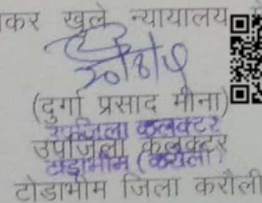 कर खुले न्यायालय
(दुर्गा प्रसाद मीना)
उपजिला कलक्टर
उपजिला कलक्टर
टोडाभीम (करौली)
टोडाभीम जिला करौली